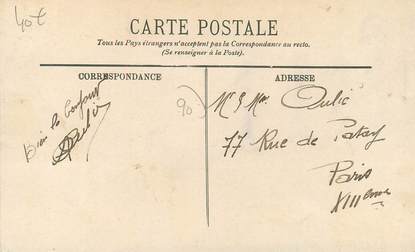 40€
CARTE POSTALE
Tous les Pays étrangers n'acceptent pas la Correspondance au recto.
(Se renseigner à la Poste).
CORRESPONDANCE
ADRESSE
Bien le bonjour
90
Mr & Mme Oulié
77 Rue de Patay
Paris
XIIIeme